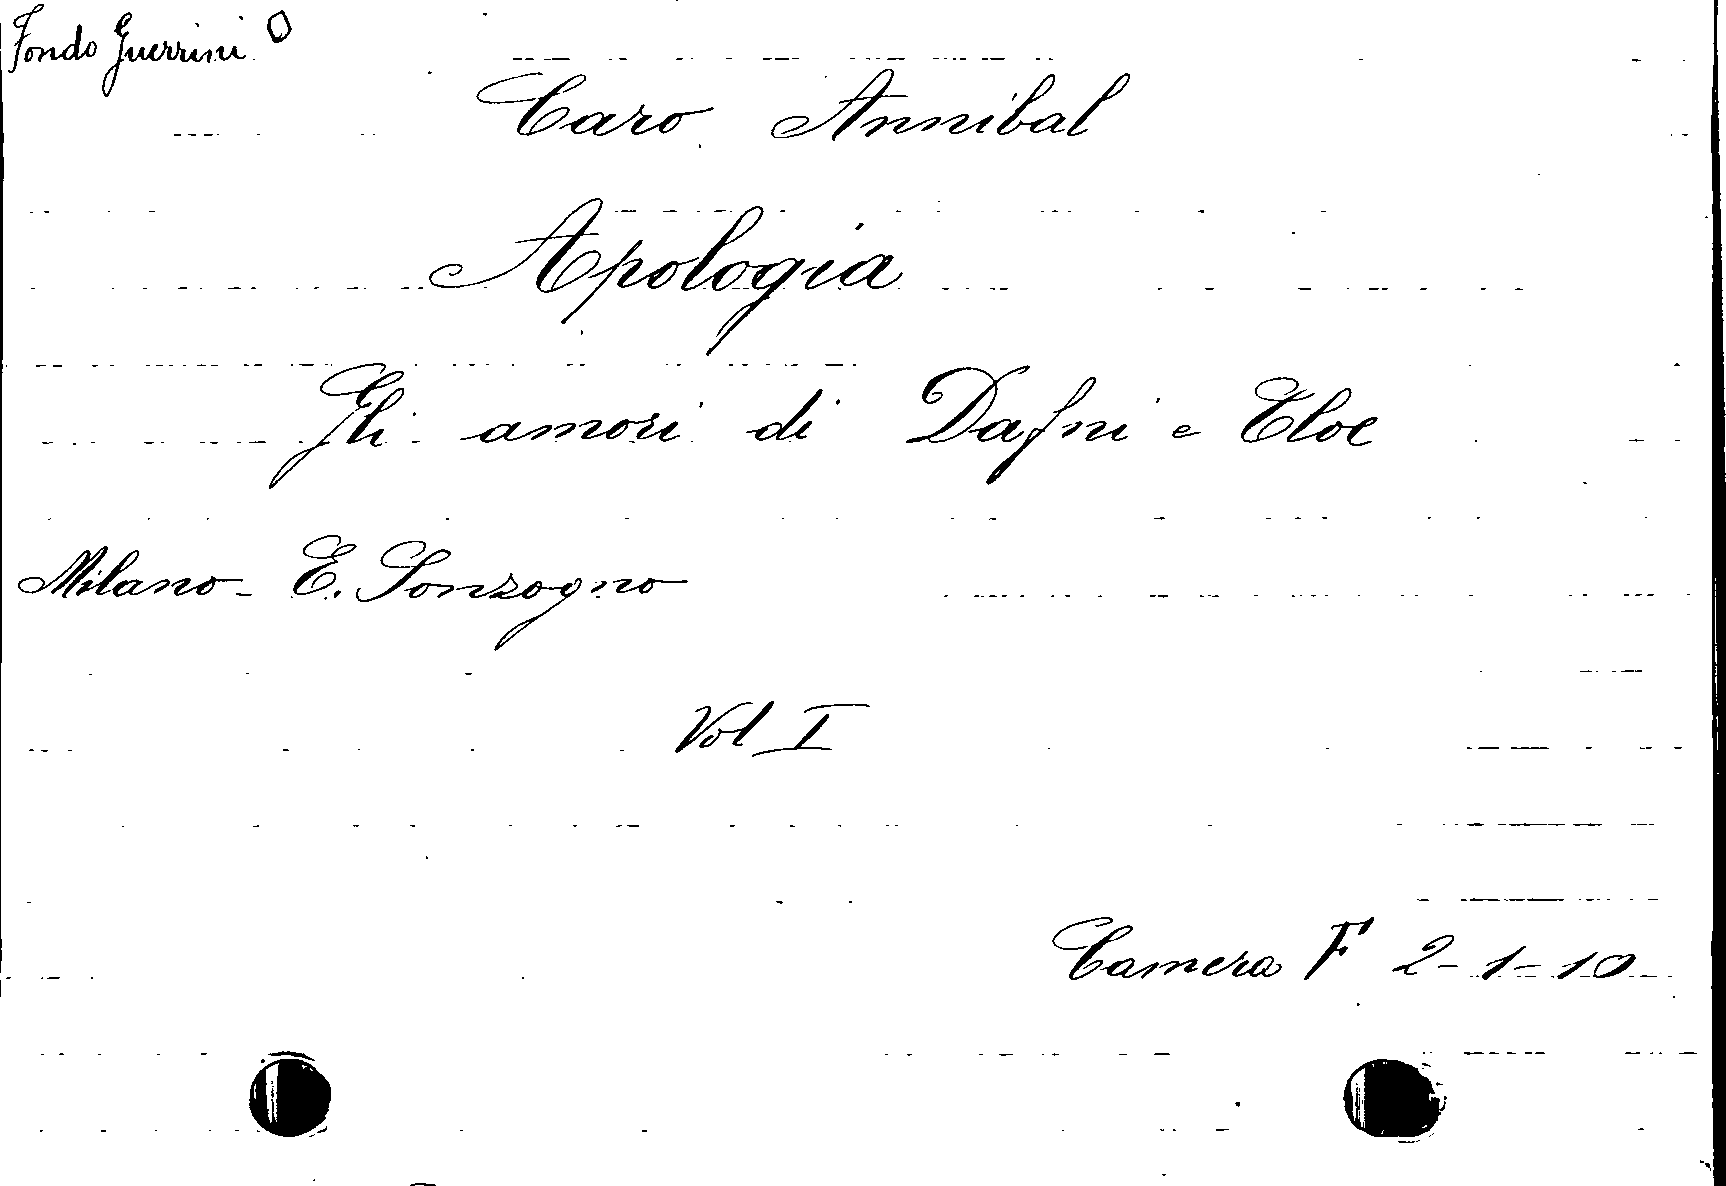 Fondo Guerrini O
Caro Annibal
Apologia
Gli amori di Dafni e Cloe
Milano - E. Sonzogno
Vol I
Camera F 2-1-10